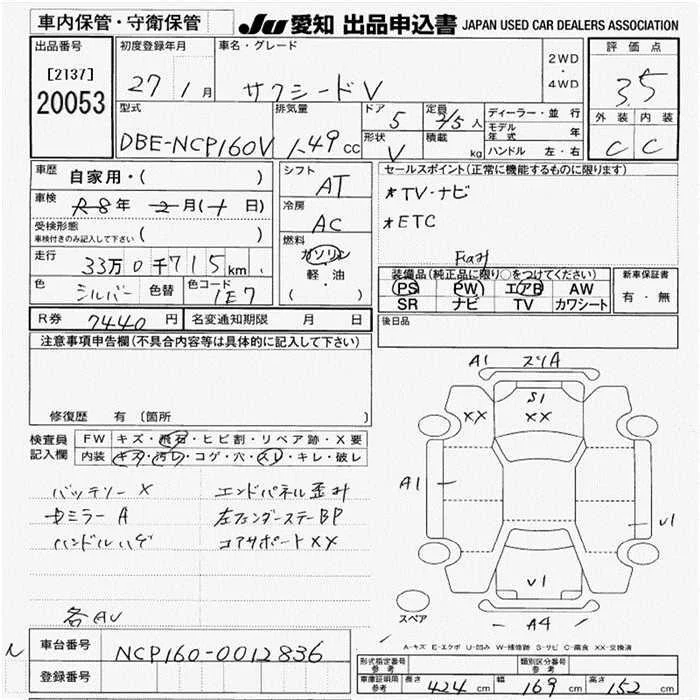 車内保管・守衛保管
JU 愛知 出品申込書 JAPAN USED CAR DEALERS ASSOCIATION
出品番号
[2137]
20053
初度登録年月
27 1月
車名・グレード
サクシードV
2WD
・
4WD
評価点
3.5
外装 内装
C C
型式
DBE-NCP160V
排気量
1.49cc
ドア
5
形状
V
定員
2/5人
積載
kg
ディーラー・並行
モデル年式 年
ハンドル 左・右
車歴
自家用・( )
車検
R8年 2月(1日)
受検形態
車検付きのみ記入して下さい ( )
走行
33万0千715km
色
シルバー
色替
色コード
1E7
シフト
AT
冷房
AC
燃料
ガソリン
・
軽・油
( )
セールスポイント(正常に機能するものに限ります)
*TV・ナビ
*ETC
装備品(純正品に限り○をつけてください)
PS PW エアB AW
SR ナビ TV カワシート
新車保証書
有・無
R券 7440円 名変通知期限 月 日
後日品
注意事項申告欄(不具合内容等は具体的に記入して下さい)
修復歴 有〔箇所 〕
検査員記入欄
FW キズ・飛石・ヒビ割・リペア跡・X要
内装 キズ・汚レ・コゲ・穴・スレ・キレ・破レ
バッテリーX エンドパネル歪み
ミラーA 左フェンダーステーBP
ハンドルハゲ コアサポートXX
各AU
A1 スリA
S1
XX XX
A1
U1
U1
A4
スペア
A-キズ E-エクボ U-凹み W-補修跡 S-サビ C-腐食 XX-交換済
車台番号 NCP160-0012836
登録番号
型式指定番号 参考
類別区分番号 参考
車庫証明用 参考 長さ 424cm 幅 169cm 高さ 152cm